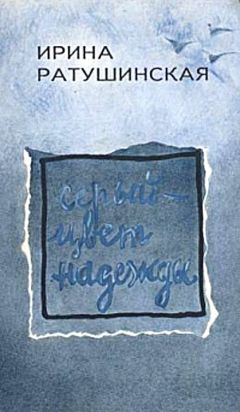 ИРИНА
РАТУШИНСКАЯ
серый –
цвет
надежды